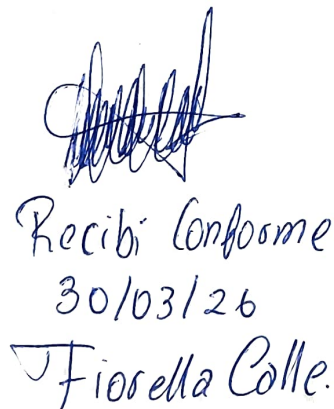 Recibi Conforme
30/03/26
Fiorella Calle.